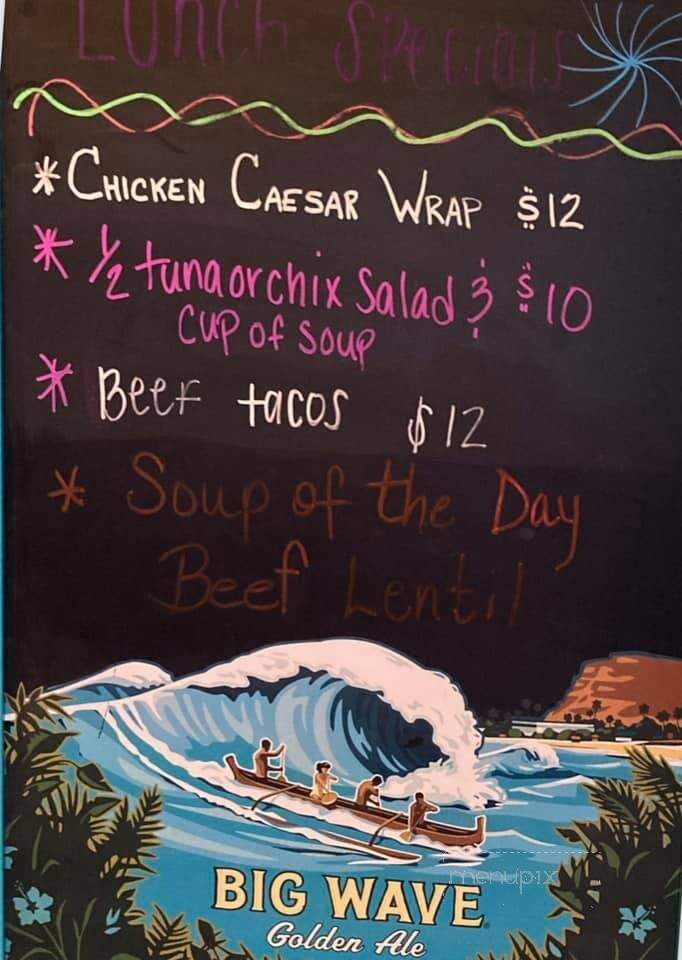 Lunch Specials
* CHICKEN CAESAR WRAP $12
* 1/2 tuna or chix Salad & $10
cup of soup
* Beef tacos $12
* Soup of the Day
Beef Lentil
BIG WAVE
Golden Ale
menupix